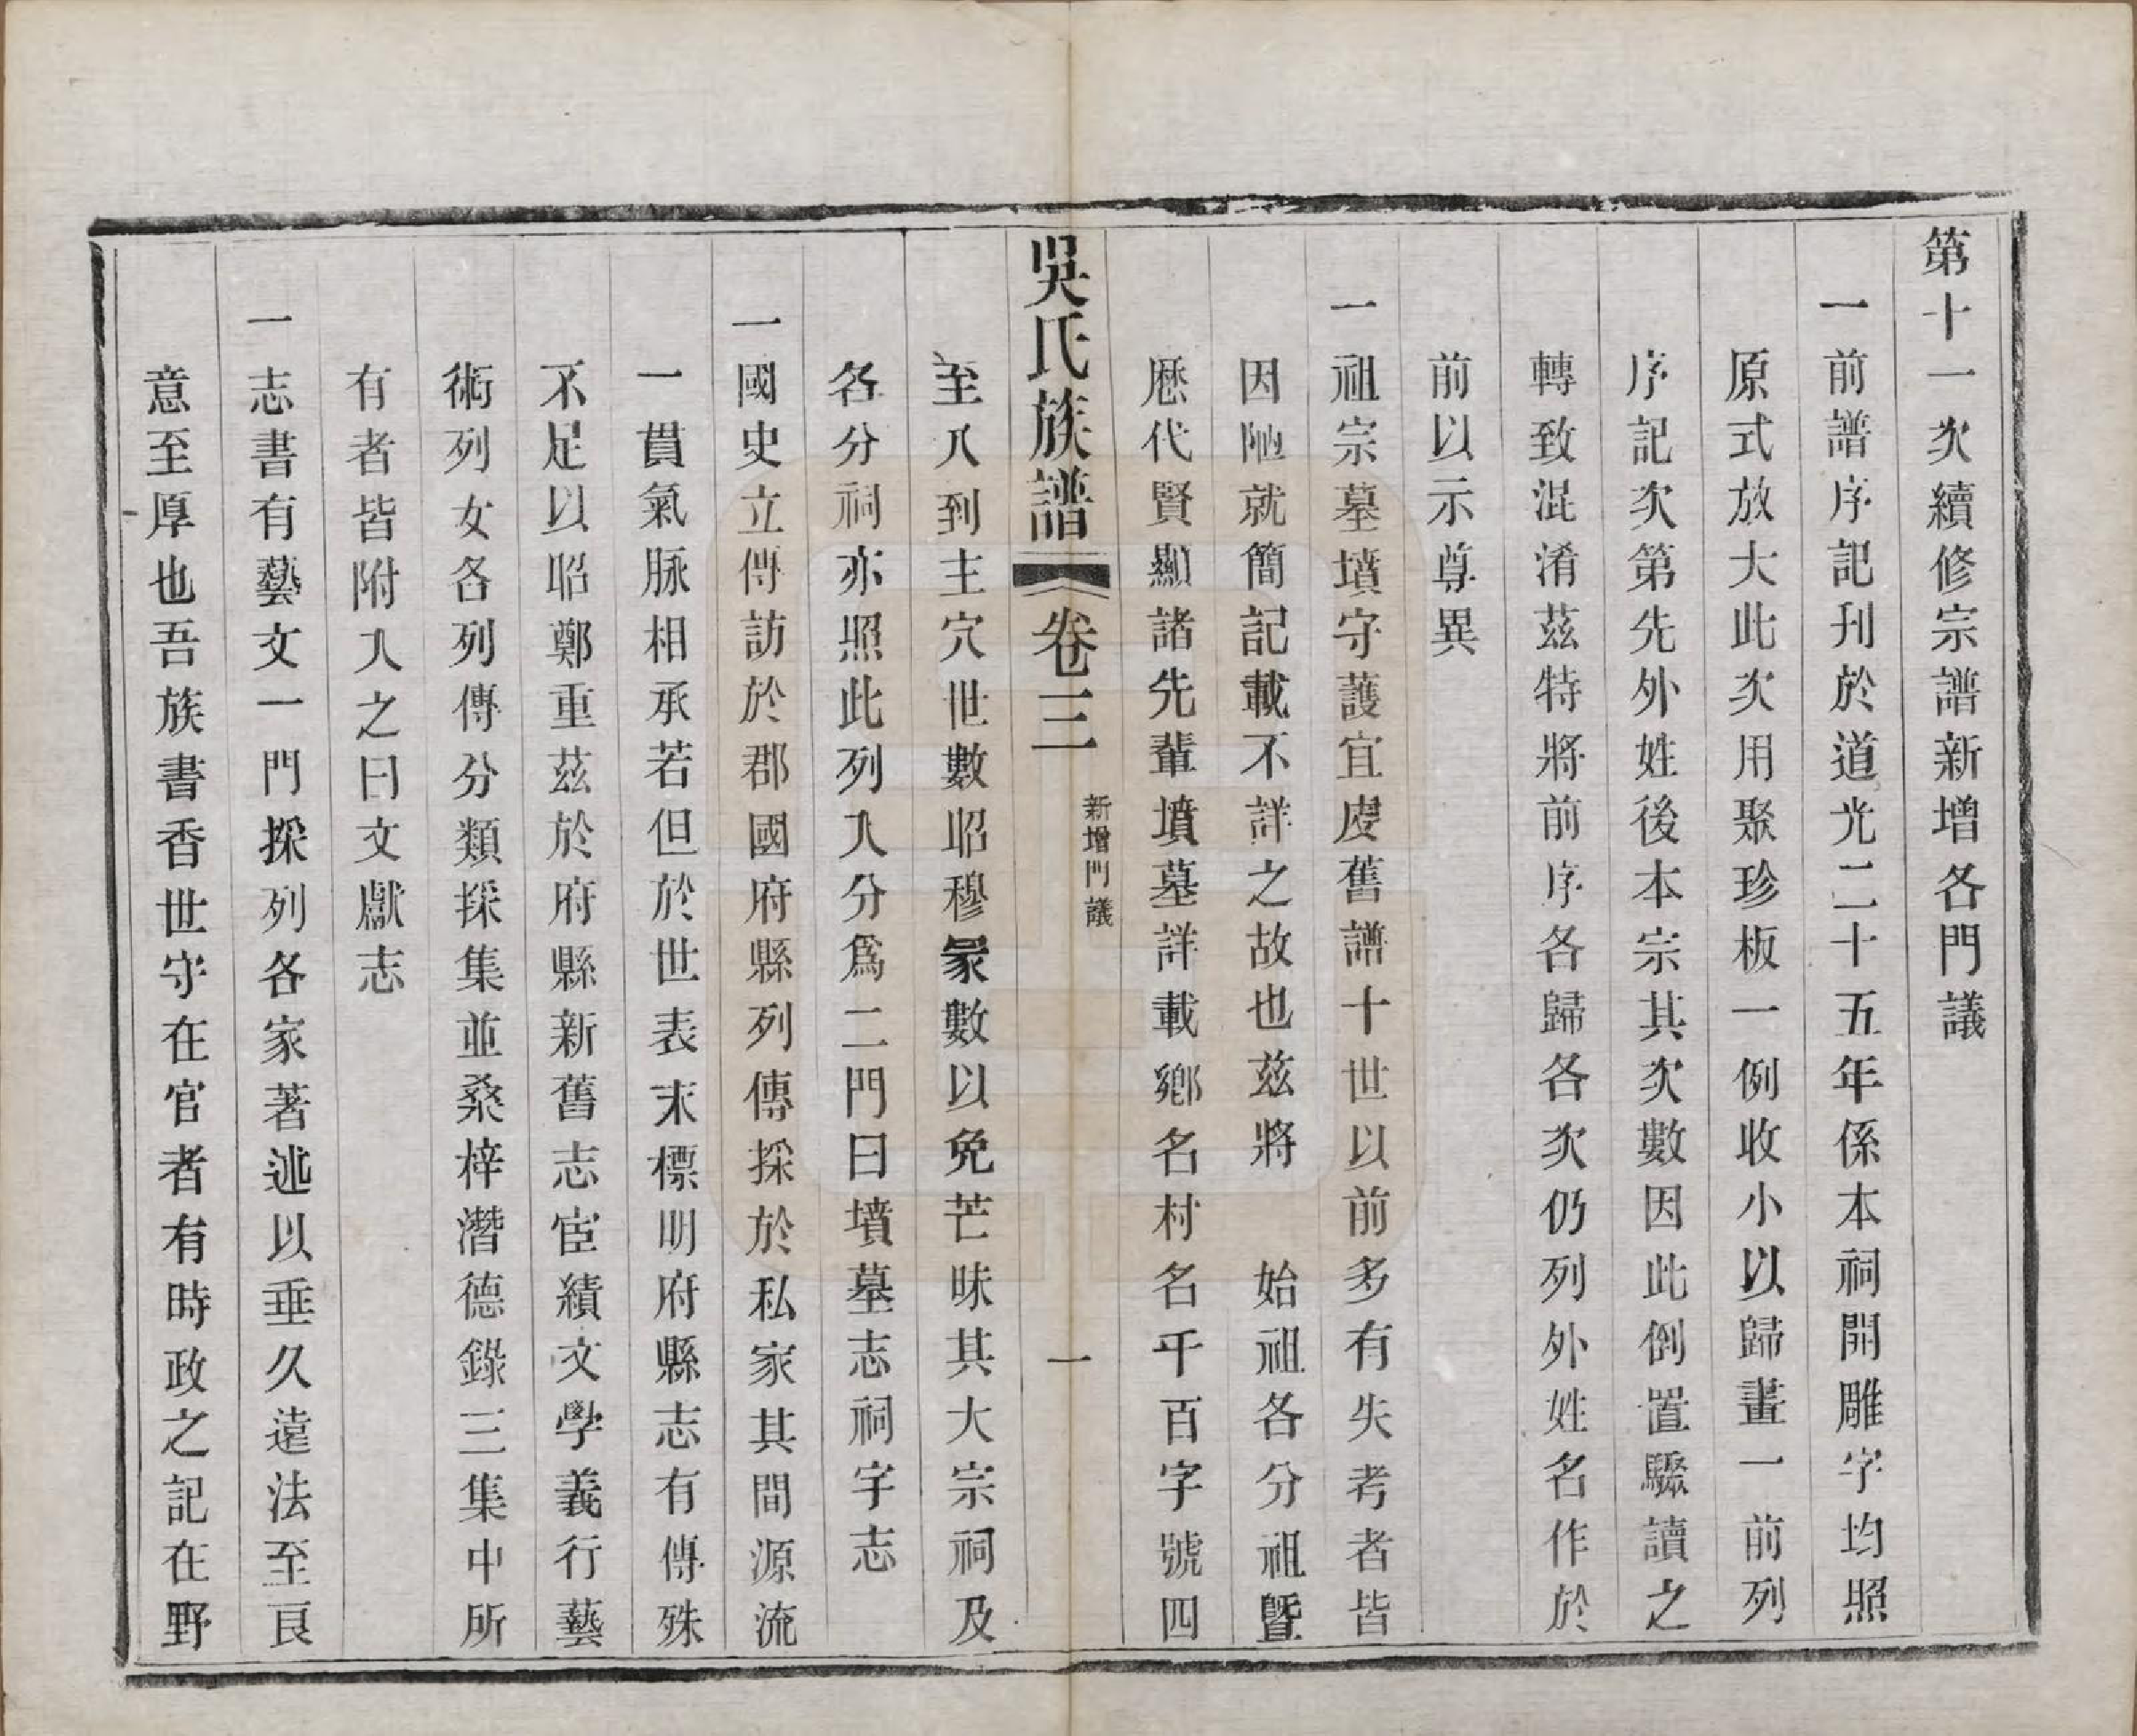 第十一次續修宗譜新增各門議
一前譜序記刊於道光二十五年係本祠開雕字均照
原式放大此次用聚珍板一例收小以歸畫一前列
序記次第先外姓後本宗其次數因此倒置驟讀之
轉致混淆茲特將前序各歸各次仍列外姓名作於
前以示尊異
一祖宗墓墳守護宜虔舊譜十世以前多有失考者皆
因陋就簡記載不詳之故也茲將　始祖各分祖暨
歷代賢顯諸先輩墳墓詳載鄉名村名千百字號四
吳氏族譜　卷三　新增門議　一
至八到主穴世數昭穆冡數以免芒昧其大宗祠及
各分祠亦照此列入分為二門曰墳墓志祠宇志
一國史立傳訪於郡國府縣列傳採於私家其間源流
一貫氣脉相承若但於世表末標明府縣志有傳殊
不足以昭鄭重茲於府縣新舊志宦績文學義行藝
術列女各列傳分類採集並桑梓潛德錄三集中所
有者皆附入之曰文獻志
一志書有藝文一門採列各家著述以垂久遠法至良
意至厚也吾族書香世守在官者有時政之記在野